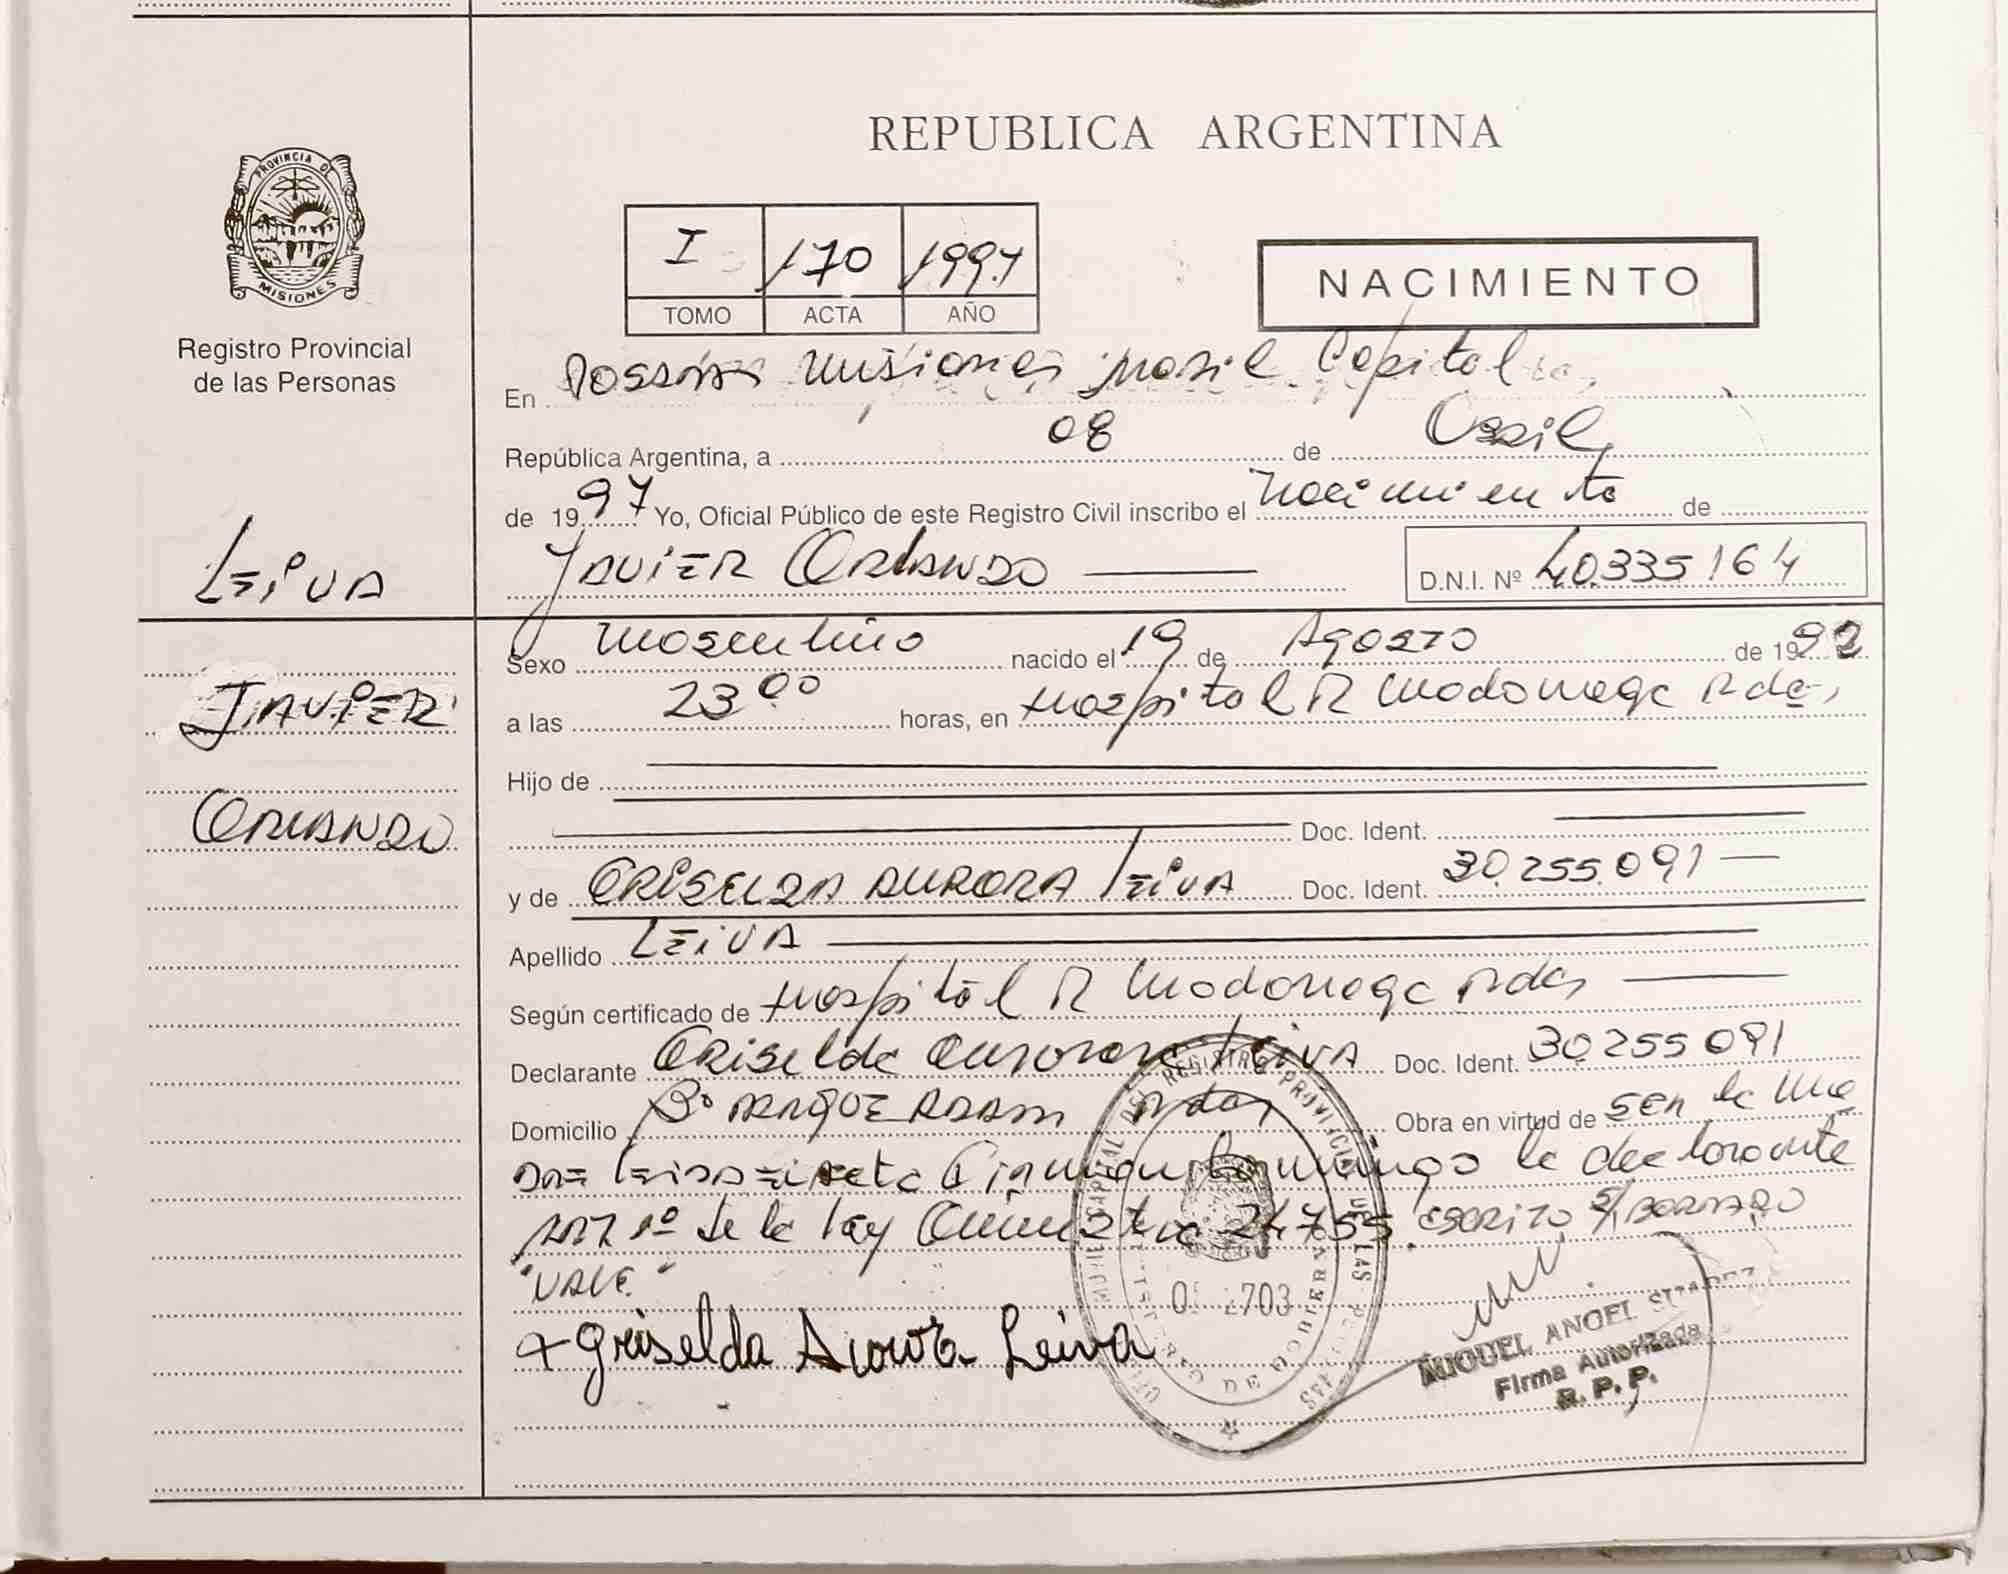 REPUBLICA ARGENTINA
PROVINCIA DE
MISIONES
Registro Provincial
de las Personas
I 170 1997
TOMO ACTA AÑO
NACIMIENTO
En Posadas Misiones Capital
República Argentina, a 08 de Abril
de 1997 Yo, Oficial Público de este Registro Civil inscribo el nacimiento de
LEIVA
JAVIER ORLANDO
D.N.I. Nº 40.335164
JAVIER
ORLANDO
Sexo masculino nacido el 19 de Agosto de 1992
a las 23 00 horas, en Hospital R Madariaga Pdas,
Hijo de
Doc. Ident.
y de GRISELDA AURORA LEIVA Doc. Ident. 30.255.091
Apellido LEIVA
Según certificado de Hospital R Madariaga Pdas
Declarante Griselda Aurora Leiva Doc. Ident. 30255091
Domicilio Bº PARQUE ADAM Pdas Obra en virtud de ser la ma
dre la declarante
ART 1º de la ley 24755. escrito s/ BORRADO
"VALE"
+ Griselda Aurora Leiva
DEL REGISTRO PROVINCIAL DE LAS
CAPITAL
DE GOBIERNO
MIGUEL ANGEL
Firma Autorizada
R. P. P.